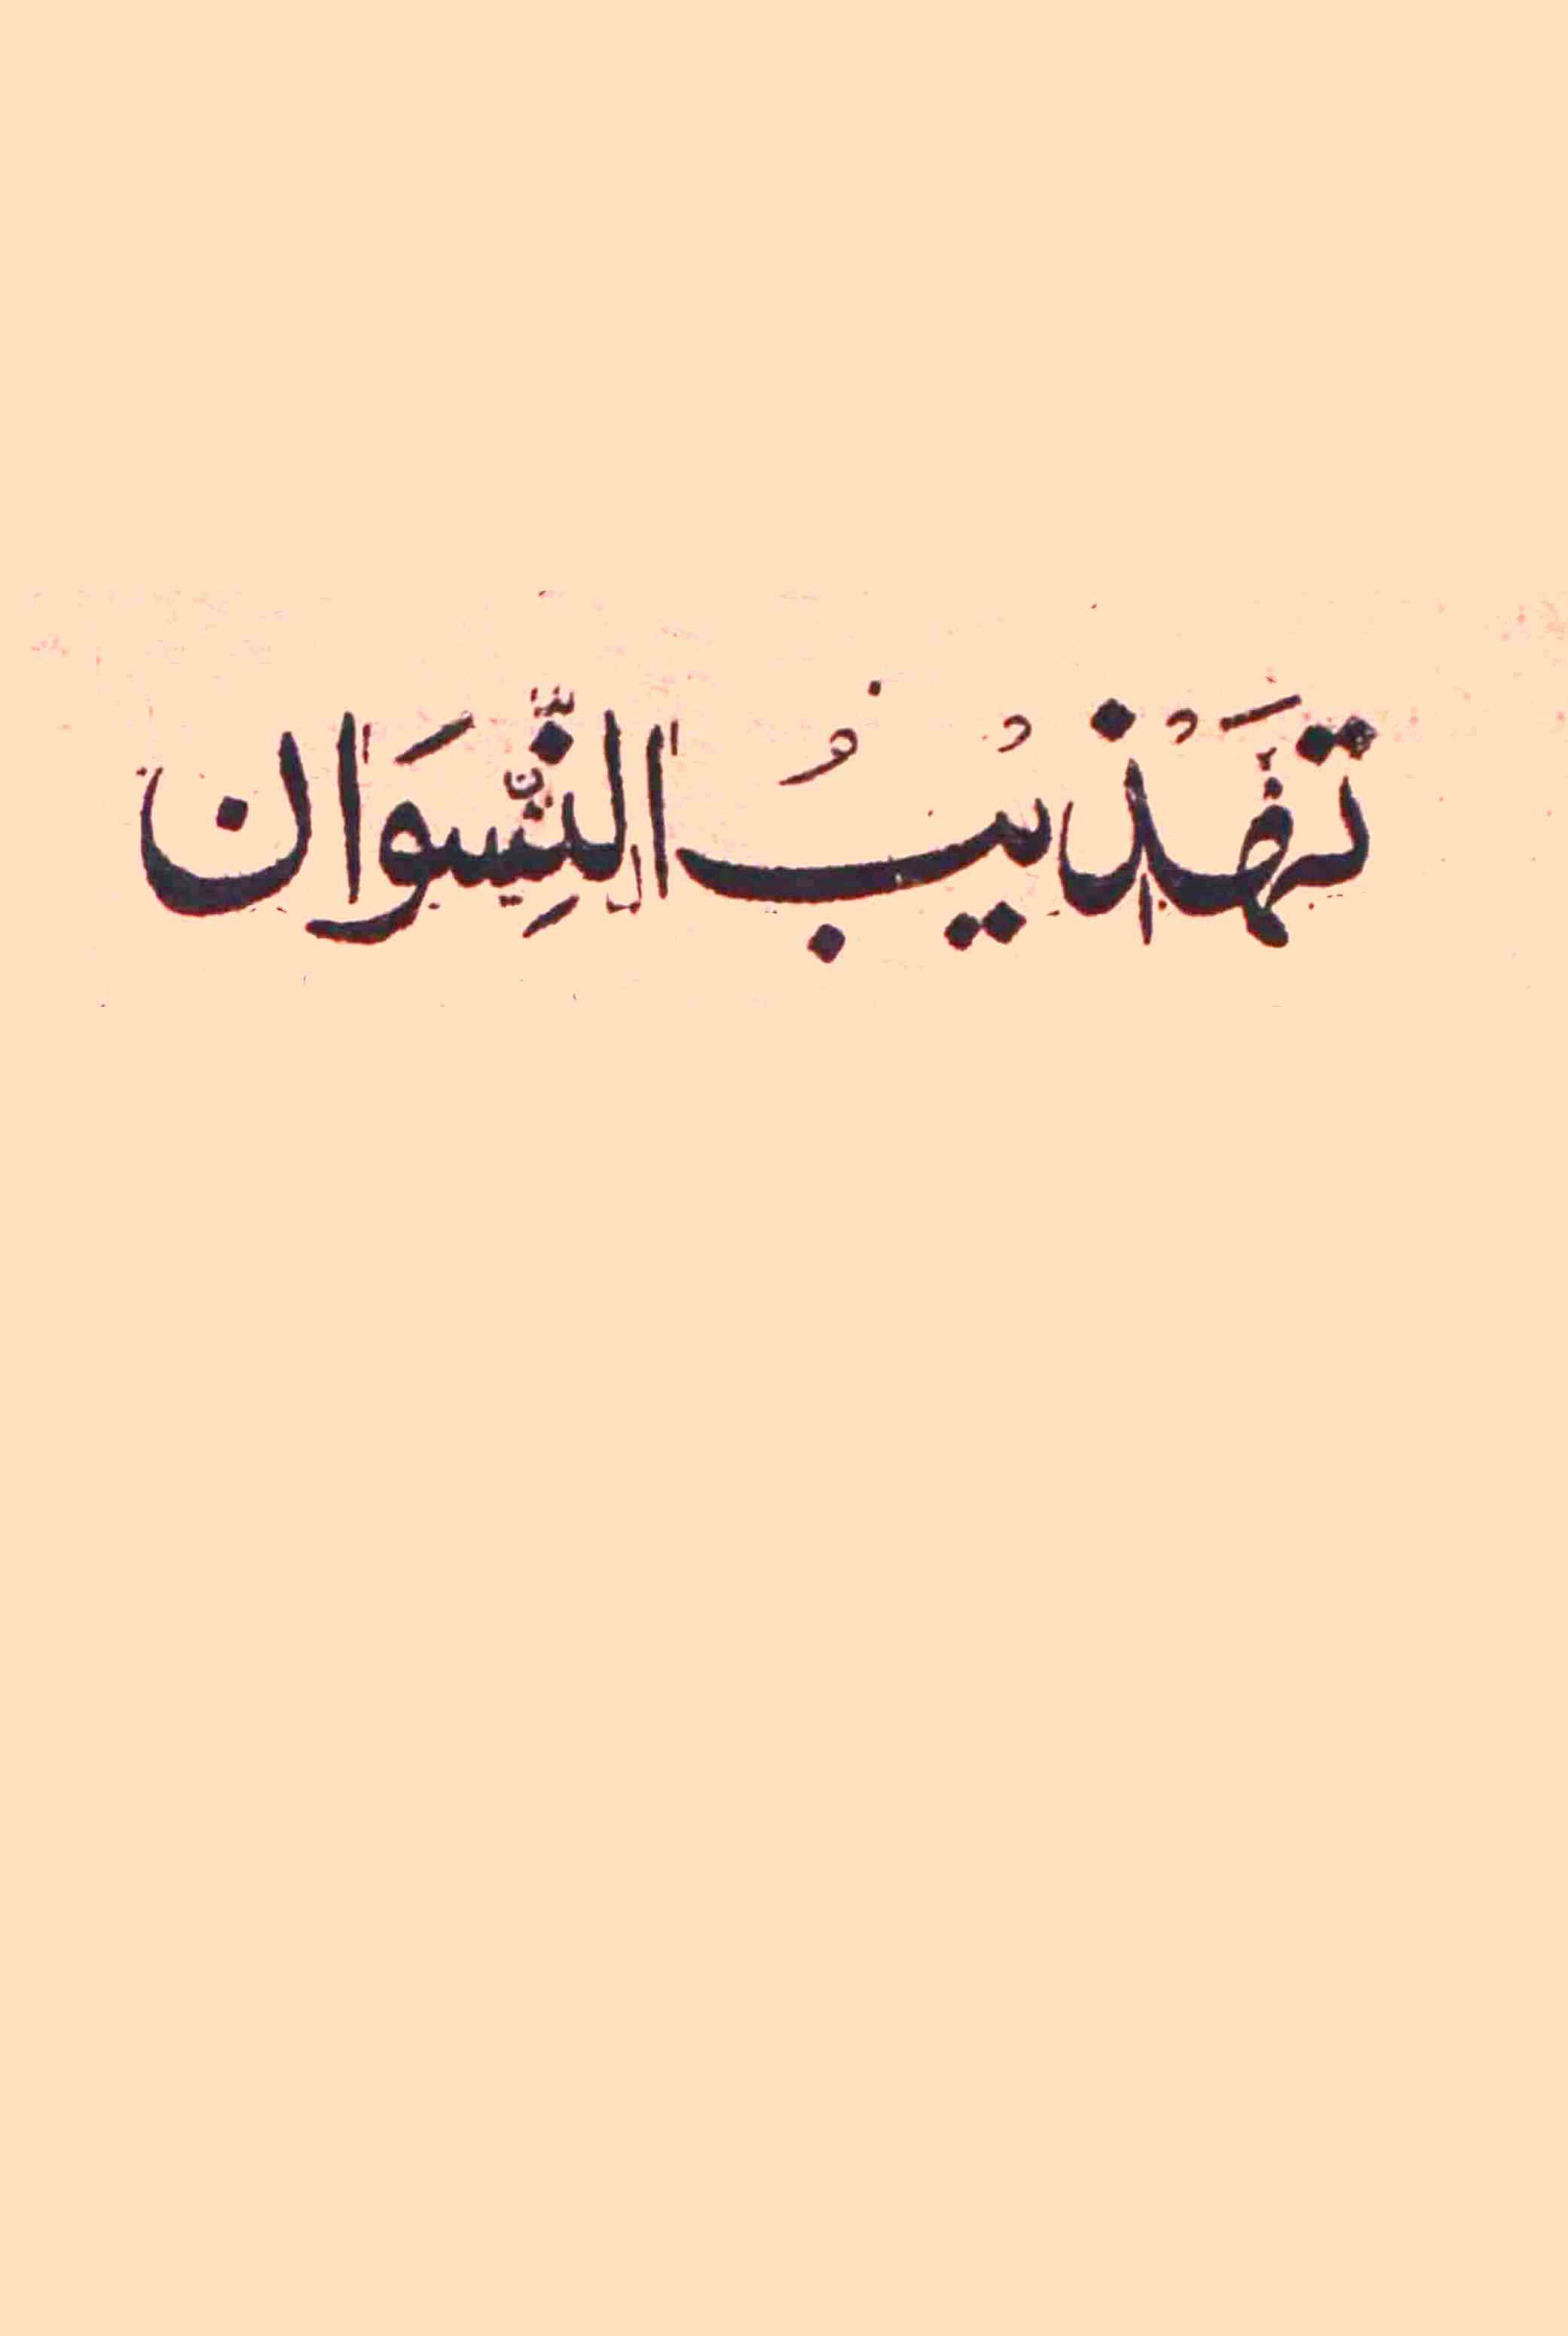 تَهْذِيْبُ النِّسْوَان